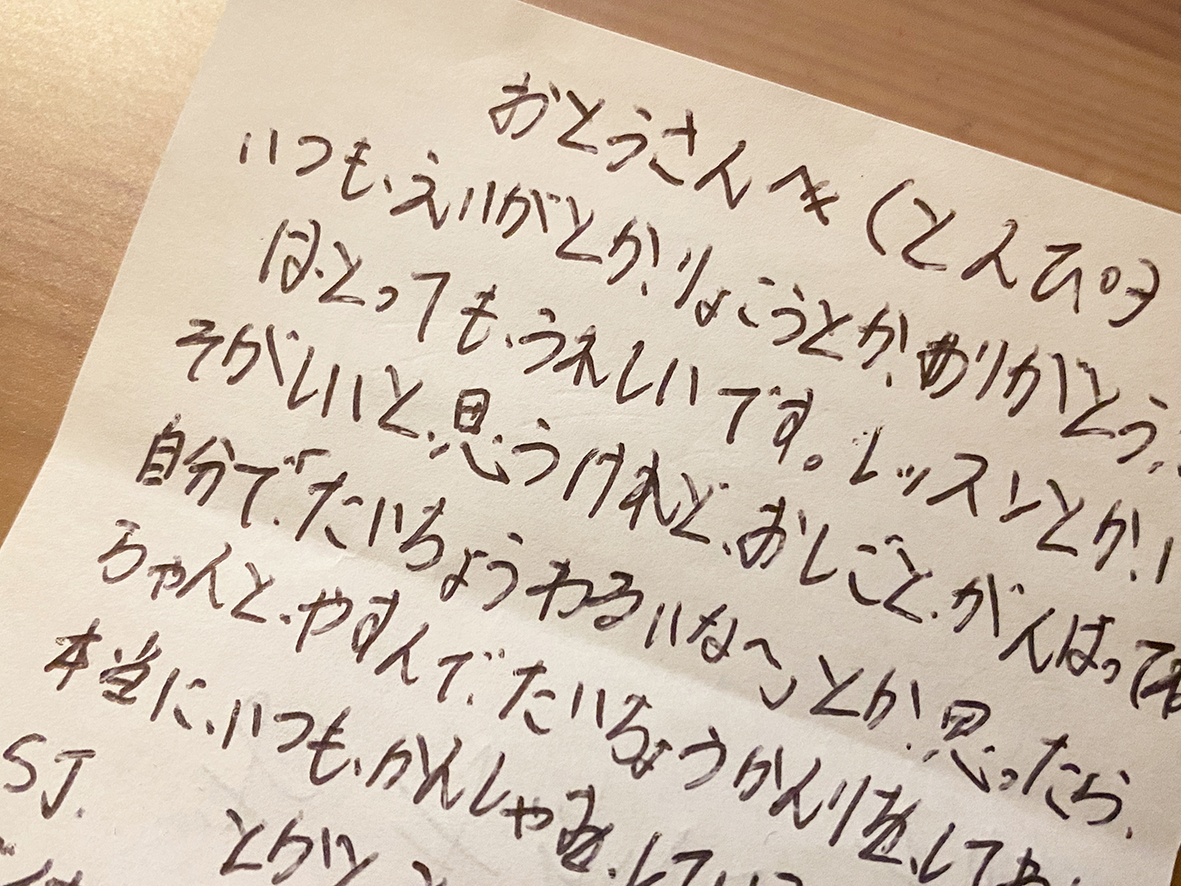 おとうさんへ(とんぴ
いつも、えいがとか、りょこうとか、ありがとう、
ほ、とっても、うれしいです。レッスンとか、い
そがしいと、思うけれど、おしごと、がんばって
自分で、たいちょうわるいな〜とか、思ったら、
ちゃんと、やすんで、たいちょうかんりを、して
本当に、いつも、かんしゃを、してい
SJ.